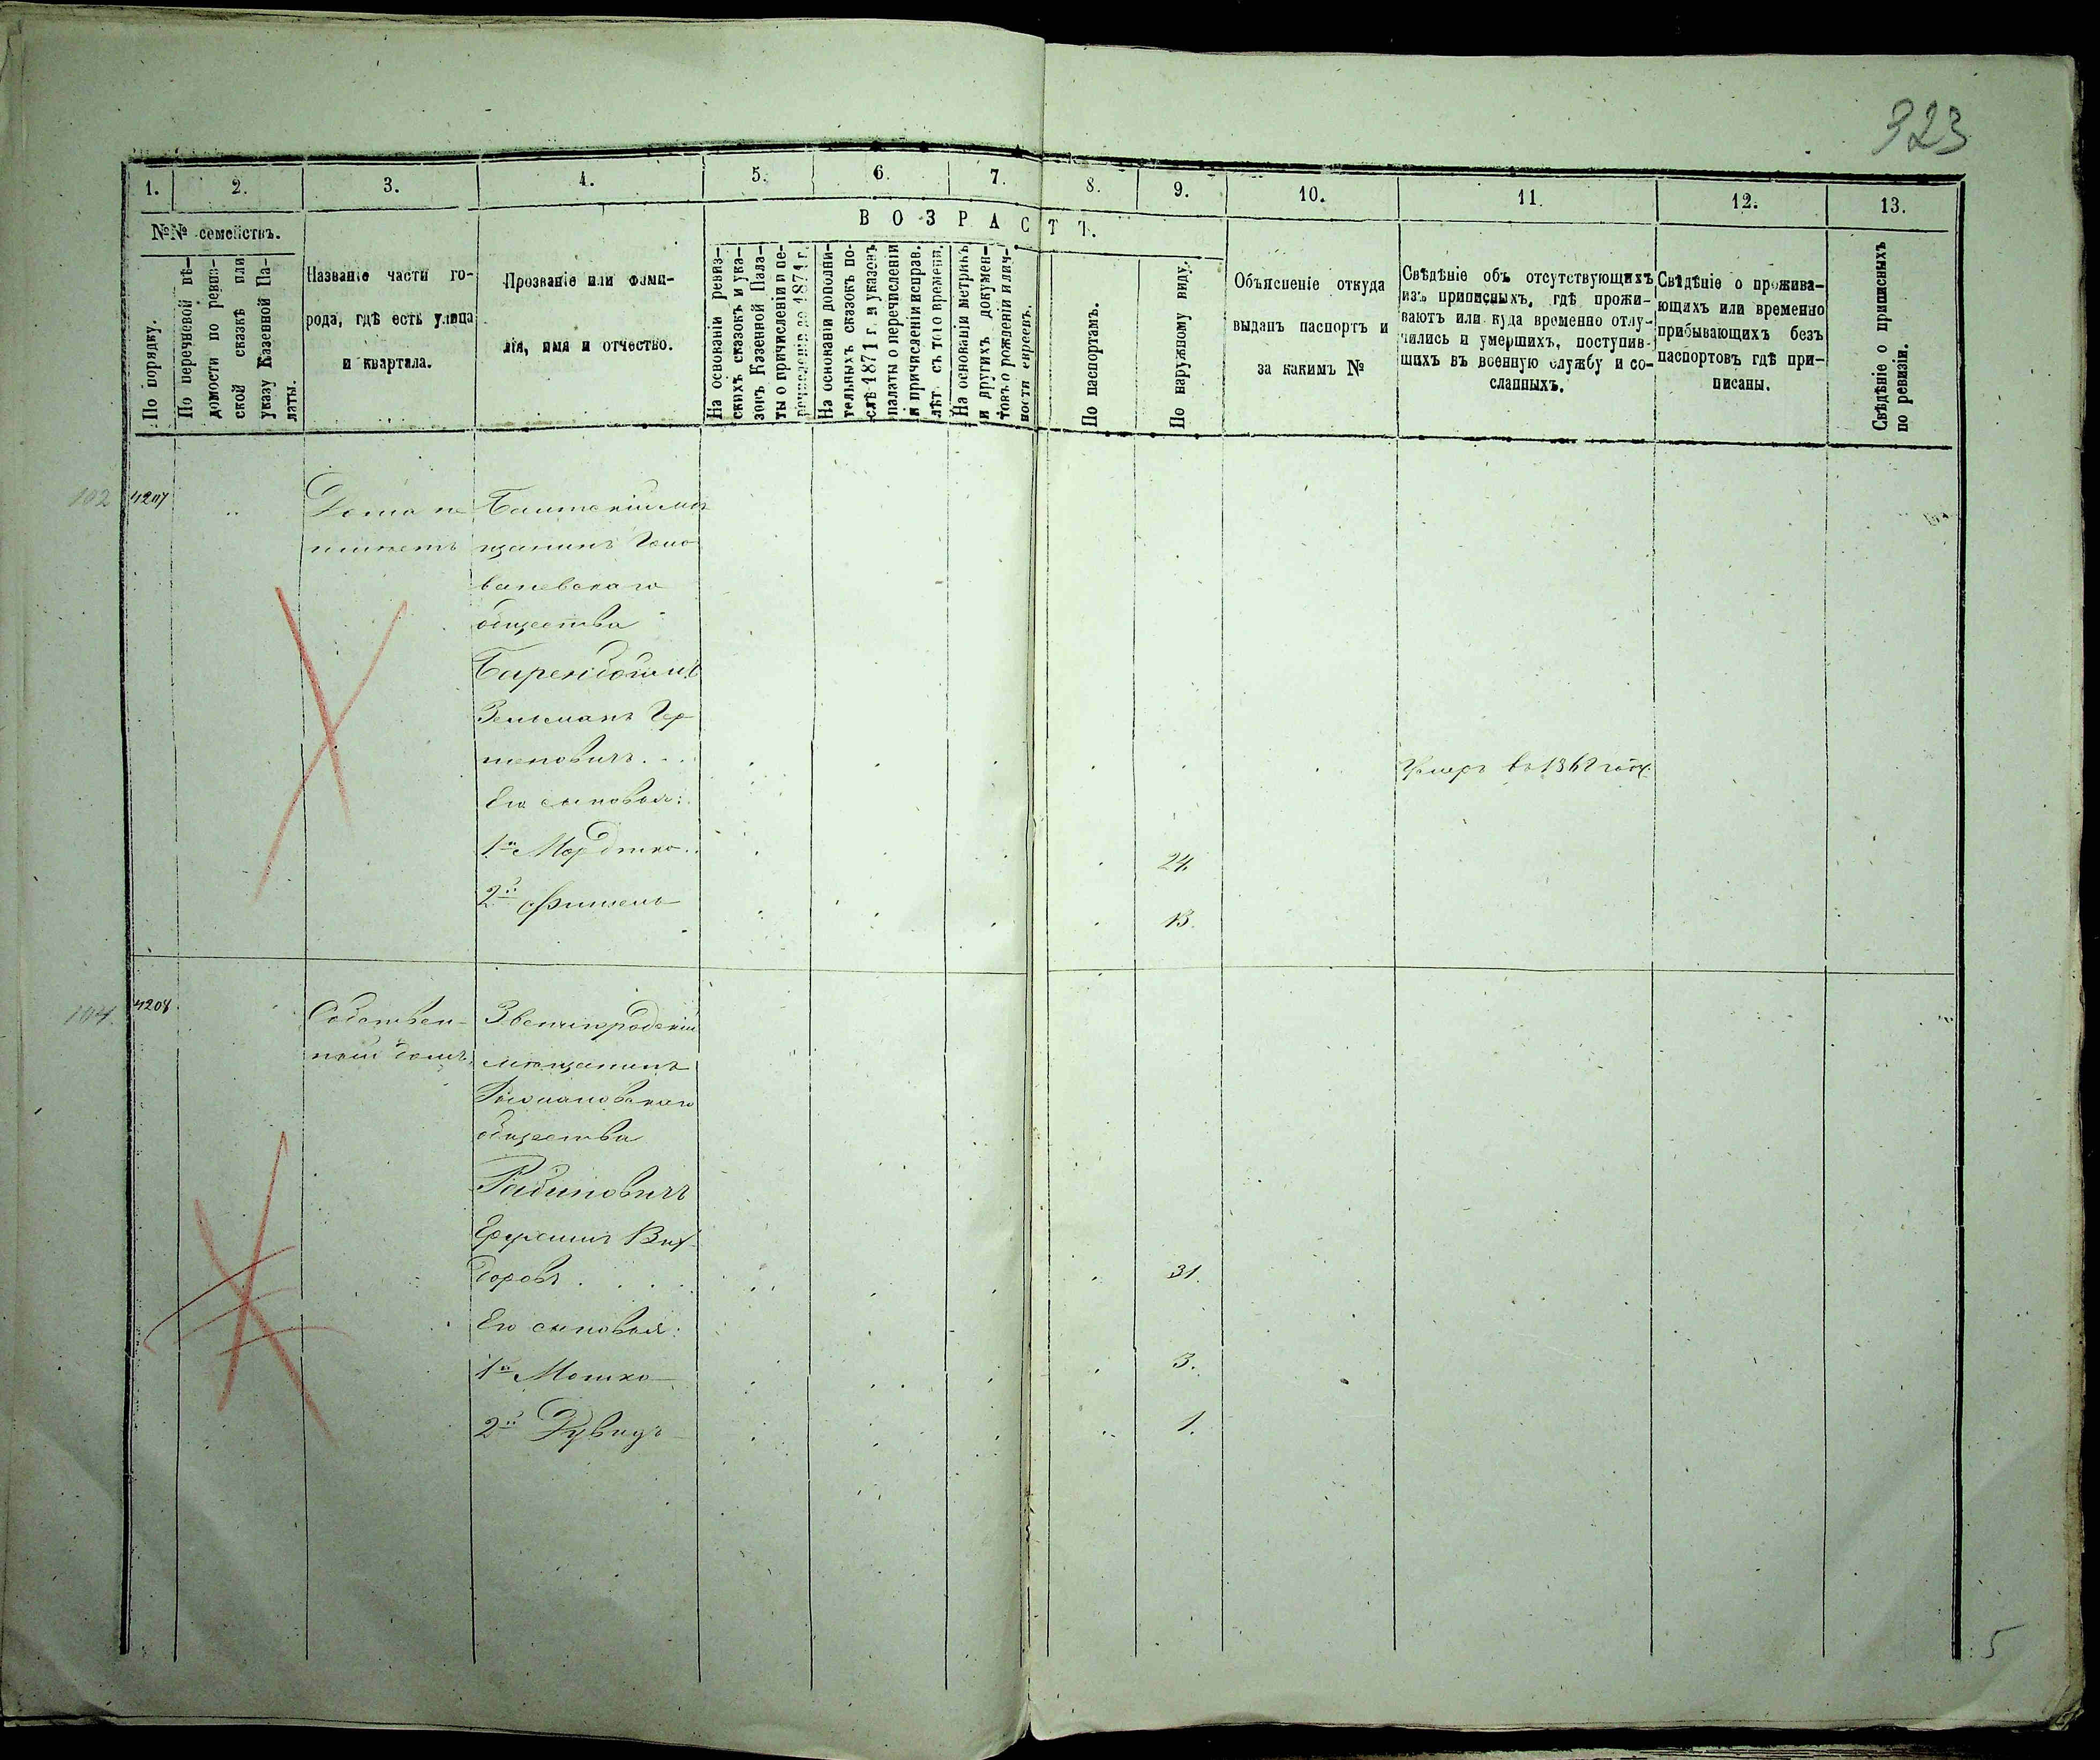 323
1. 2. 3. 4. 5. 6. 7. 8. 9. 10. 11. 12. 13.
№№ семействъ.
ВОЗРАСТЪ.
По порядку.
По перечневой вѣ-
домости по ревиз-
ской сказкѣ или
указу Казенной Па-
латы.
Названіе части го-
рода, гдѣ есть улица
и квартала.
Прозваніе или фами-
лія, имя и отчество.
На основаніи ревиз-
скихъ сказокъ и ука-
зовъ Казенной Пала-
ты о причисленіи и пе-
речисленіи до 1871 г.
На основаніи дополни-
тельныхъ сказокъ по-
слѣ 1871 г. и указовъ
палаты о перечисленіи
и причисленіи исправ.
лѣт. съ того времени.
На основаніи метрикъ
и другихъ докумен-
товъ о рожденіи и лич-
ности евреевъ.
По паспортамъ.
По наружному виду.
Объясненіе откуда
выданъ паспортъ и
за какимъ №
Свѣдѣніе объ отсутствующихъ
изъ приписныхъ, гдѣ прожи-
ваютъ или куда временно отлу-
чились и умершихъ, поступив-
шихъ въ военную службу и со-
сланныхъ.
Свѣдѣніе о прожива-
ющихъ или временно
прибывающихъ безъ
паспортовъ гдѣ при-
писаны.
Свѣдѣніе о приписныхъ
по ревизіи.
102 4207
Дома не
имѣетъ
Балтскій мѣ
щанинъ Голо
ваневскаго
общества
Зельманъ Гер
шковичъ...
Умеръ въ 186 году.
Его сыновья:
1й Мордко.. 24.
2й Фишель 13.
4208
Собствен-
ный домъ
Звенигородскій
мѣщанинъ
общества
Рабиновичъ
Ефроимъ Виг
доровъ.... 31.
Его сыновья:
1й Мошко 3.
2й Рувинъ 1.
5